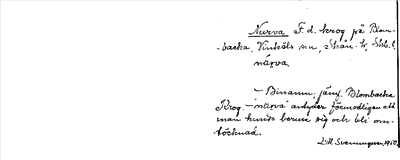 Nurva F.d. krog på Blom-
backa, sn, Skån. hd, Skbg. l.
närva
– Binamn, jämf. Blombacka
Krog. – närvä antyder förmodligen att
man kunde berusa sig och bli om-
töcknad.
D.M. Svenningsson, 1950.